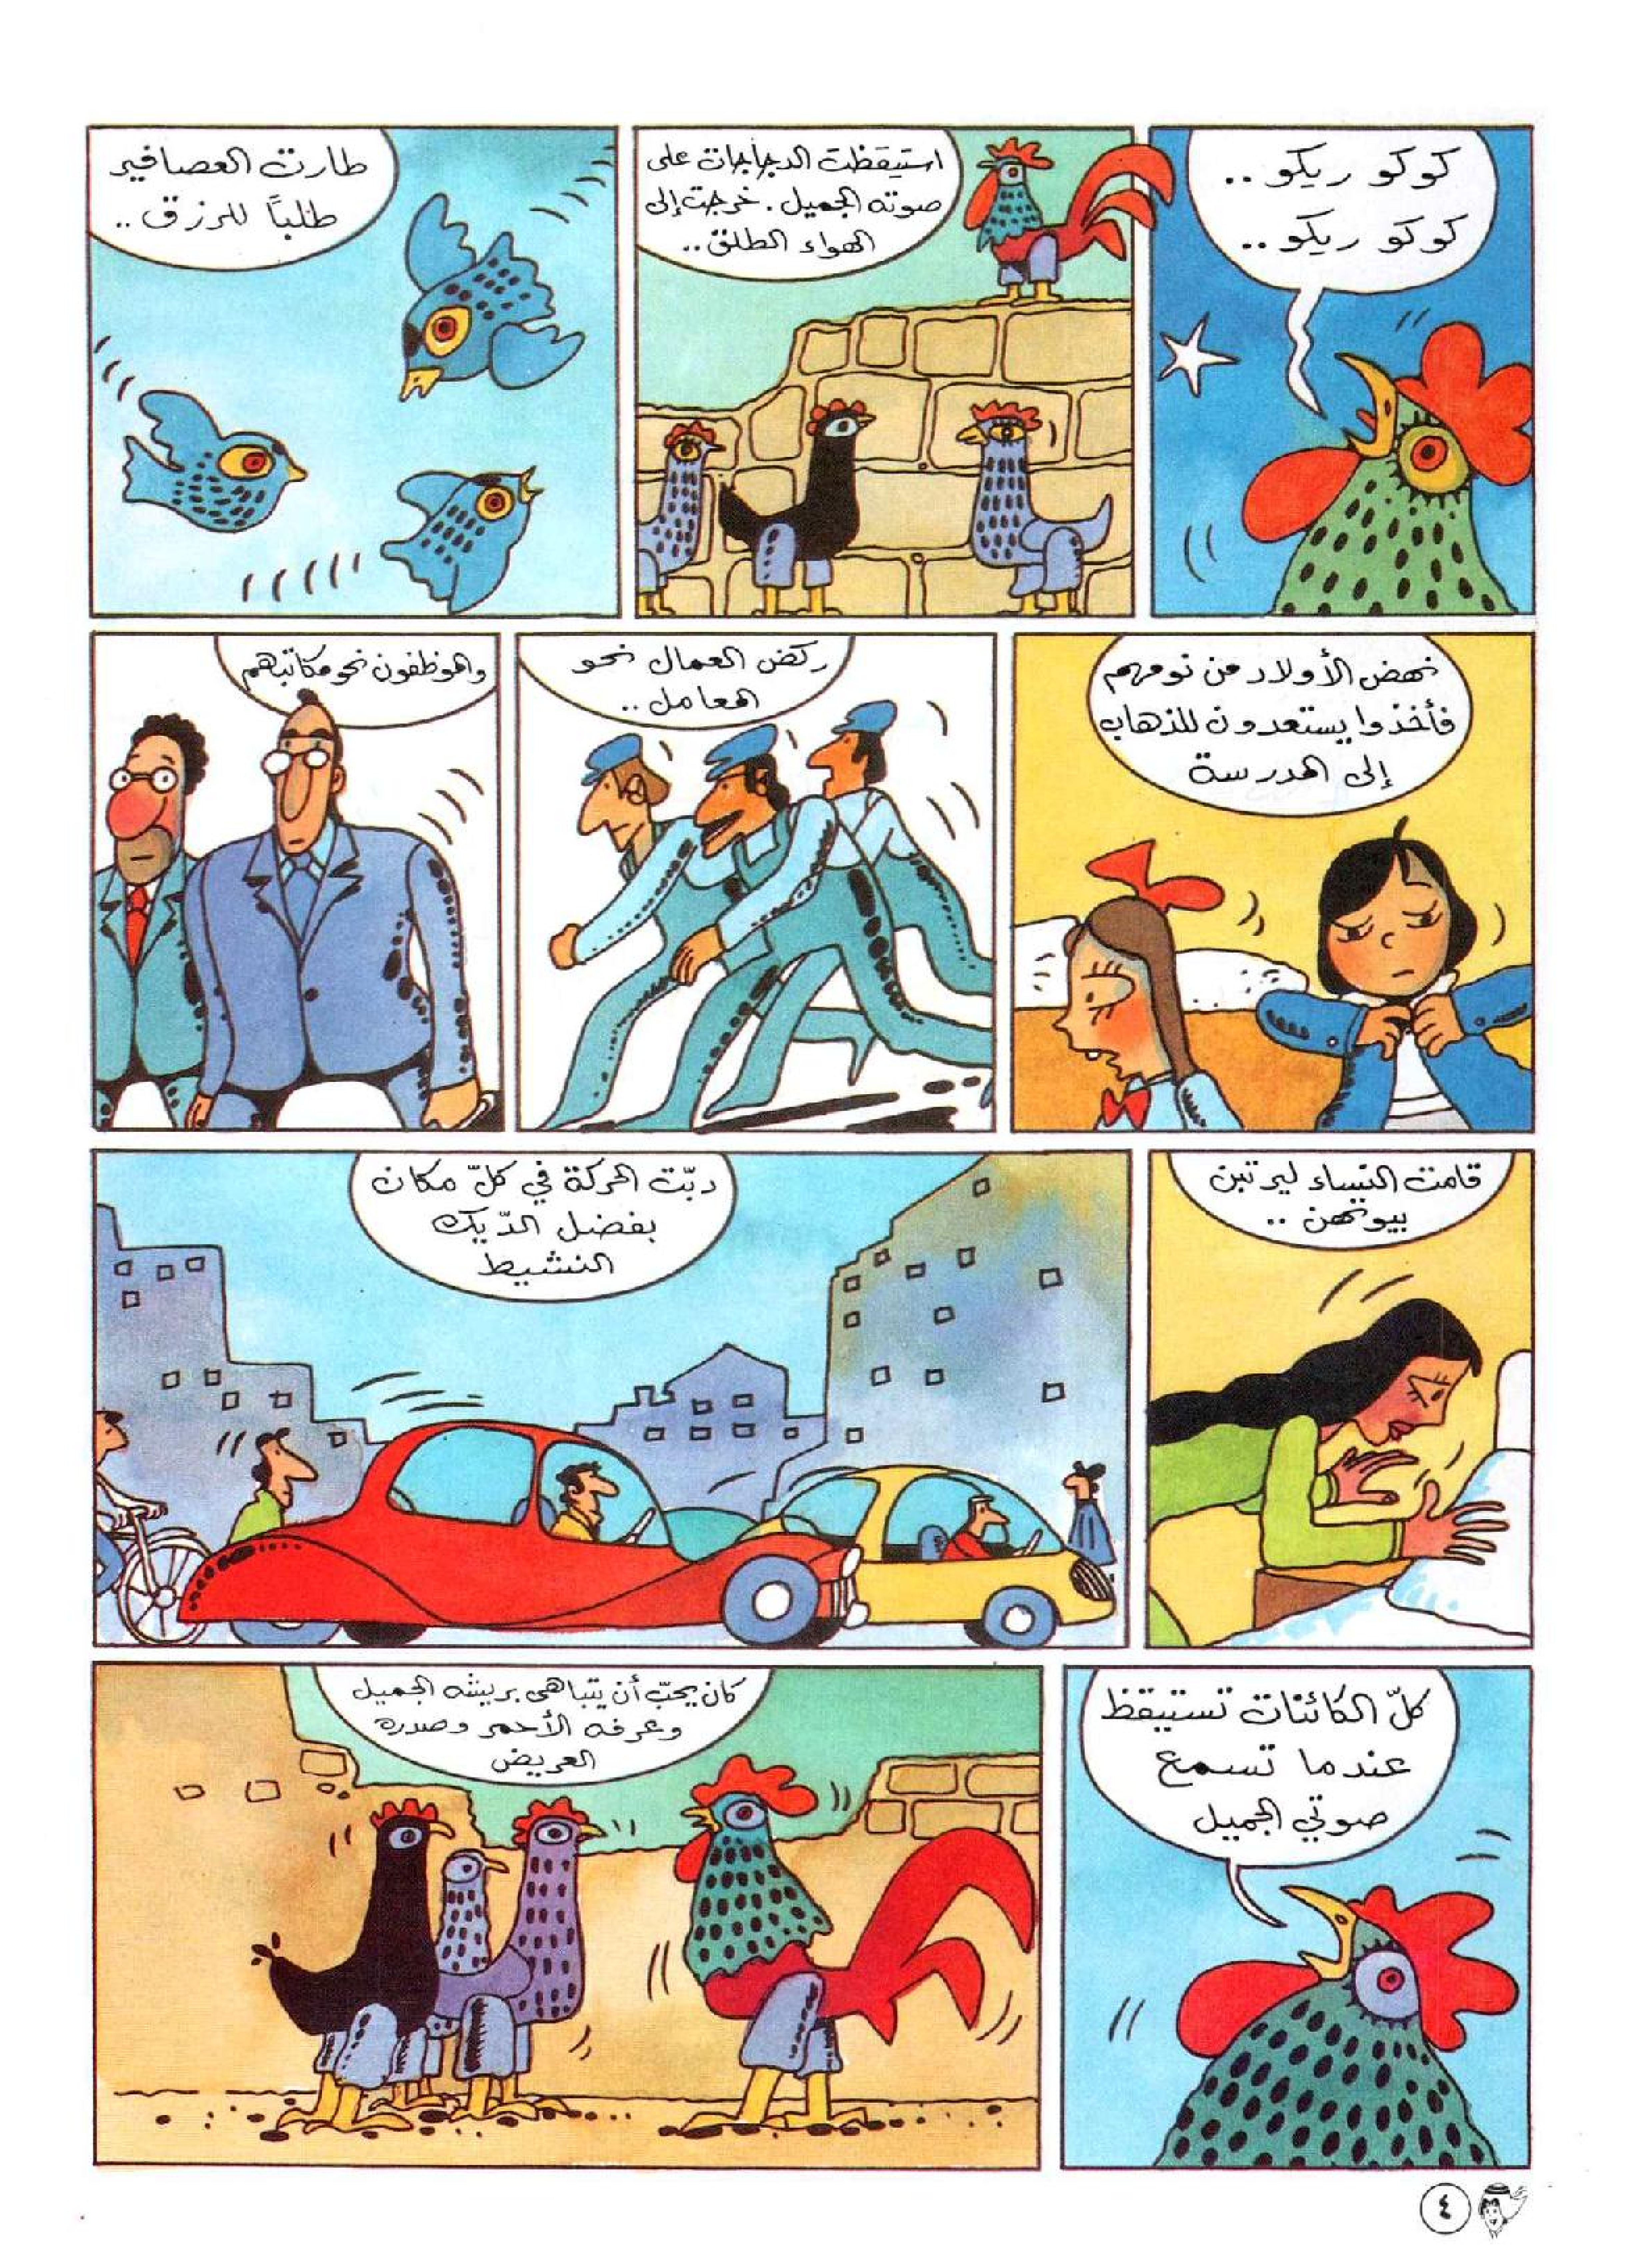 كوكو ريكو ..
كوكو ريكو ..
استيقظت الدجاجات على
صوته الجميل . خرجت إلى
الهواء الطلق ..
طارت العصافير
طلباً للرزق ..
نهض الأولاد من نومهم
فأخذوا يستعدون للذهاب
إلى المدرسة
ركض العمال نحو
المعامل ..
والموظفون نحو مكاتبهم
قامت النساء ليرتبن
بيوتهن ..
دبّت الحركة في كلّ مكان
بفضل الدّيك
النشيط
كلّ الكائنات تستيقظ
عندما تسمع
صوتي الجميل
كان يحبّ أن يتباهى بريشه الجميل
وعرفه الأحمر وصدره
العريض
٤